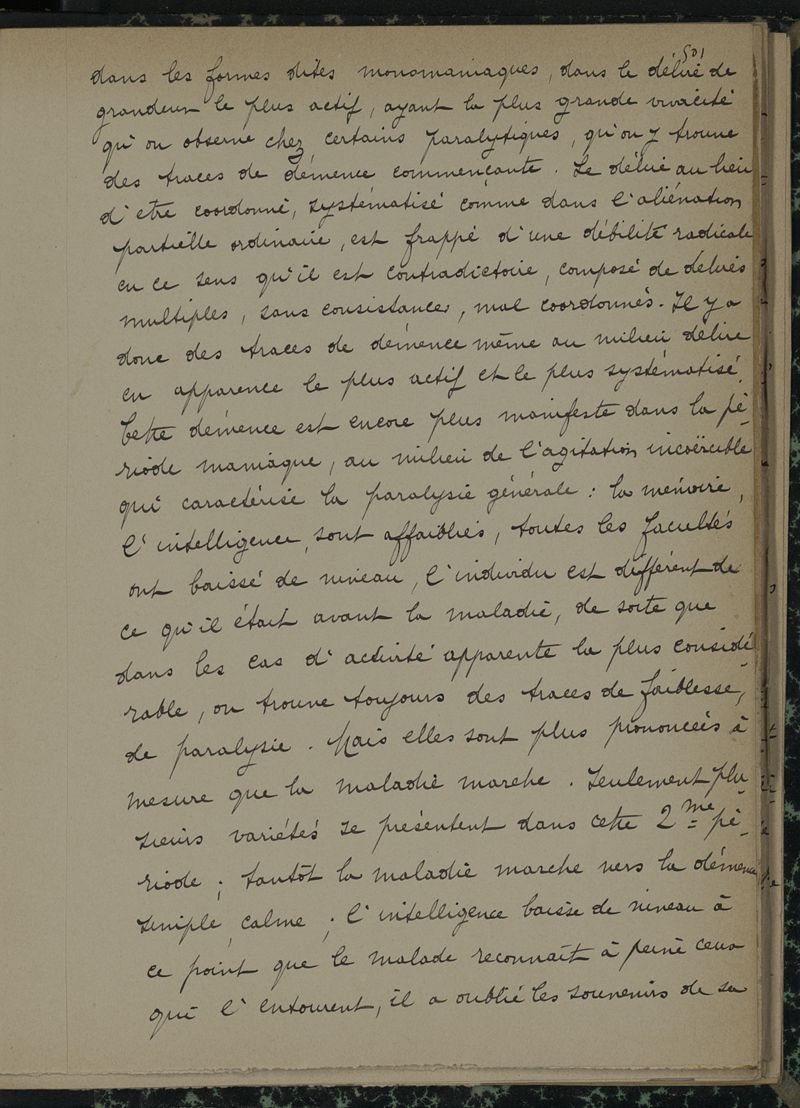 501
dans les formes dites monomaniaques, dans le délire de
grandeur le plus actif, ayant la plus grande vivacité
qu'on observe chez certains paralytiques, qu'on y trouve
des traces de démence commençante. Le délire au lieu
d'etre coordonné, systématisé comme dans l'aliénation
partielle ordinaire, est frappé d'une débilité radicale
en ce sens qu'il est contradictoire, composé de délires
multiples, sans consistance, mal coordonnés. Il y a
donc des traces de démence même au milieu délire
en apparence le plus actif et le plus systématisé.
Cette démence est encore plus manifeste dans la pé-
riode maniaque, au milieu de l'agitation incoërcible
qui caractérise la paralysie générale : la mémoire,
l'intelligence, sont affaiblies, toutes les facultés
ont baissé de niveau, l'individu est différent de
ce qu'il était avant la maladie, de sorte que
dans les cas d'activité apparente la plus considé-
rable, on trouve toujours des traces de faiblesse,
de paralysie. Mais elles sont plus prononcées à
mesure que la maladie marche. Seulement plu-
sieurs variétés se présentent dans cette 2me pé-
riode ; tantôt la maladie marche vers la démence
simple, calme ; l'intelligence baisse de niveau à
ce point que le malade reconnaît à peine ceux
qui l'entourent, il a oublié les souvenirs de sa